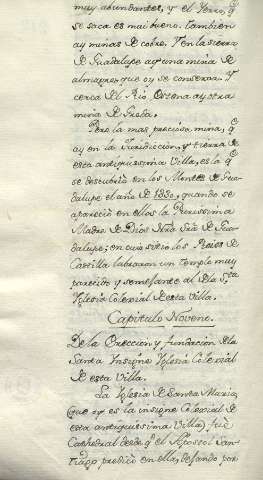 muy abundantes, y el Yerro, q̃
se saca es mui bueno. tambien
ay minas de cobre. Y en la sierra
de Guadalupe ay una mina de
almagre, que oy se conserva. Y
cerca del Rio ay otra
mina de Greba.
Pero la mas preciosa mina, q̃
ay en la Juridiccion, y tierra de
esta antiquissima Villa, es la q̃
se descubrio en los Montes de Gua-
dalupe el año de 1330, quando se
aparecio en ellos la Purissima
Madre de Dios Nrã Srã de Gua-
dalupe; en cuio sitio los Reies de
Castilla labraron un templo muy
parecido y semejante al de la Sta
Iglesia Colexial de esta Villa.
Capitulo Noveno.
De la Ereccion, y fundacion de la
Santa Insigne Iglesia Colexial
de esta Villa.
La Iglesia de Santa Maria,
que oy es la insigne Colexial de
esta antiquissima Villa, fue
Cathedral desde q̃ el Apostol San-
tiago predicò en ella, dejando por